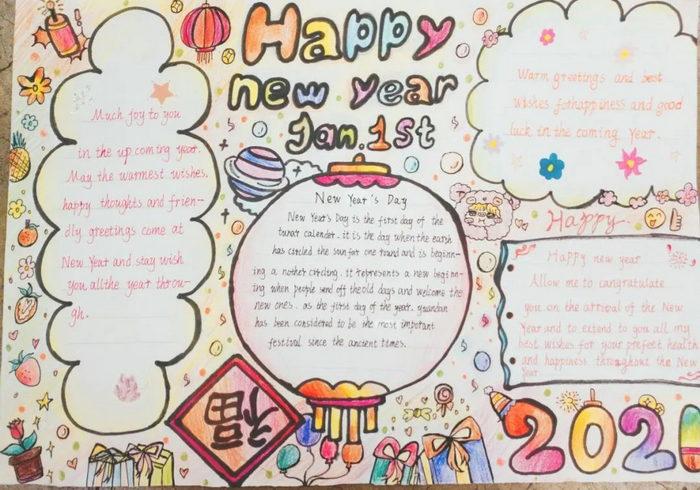 Happy
new year
Jan.1st
Much joy to you
in the up coming year.
May the warmest wishes,
happy thoughts and frien-
dly greetings come at
New Year and stay wish
you all the year throu-
gh.
New Year's Day
New Year's Day is the first day of the
lunar calender. it is the day when the earth
has circled the sun for one round and is beginn-
ing a nother circling. it represents a new beginn-
ing when people send off the old days and welcome the
new ones. as the first day of the year, yuandan
has been considered to be the most important
festival since the ancient times.
Warm greetings and best
wishes for happiness and good
luck in the coming year.
Happy
Happy new year
Allow me to congratulate
you on the arrival of the New
Year and to extend to you all my
best wishes for your prefect health
and happiness throughout the New
Year
福
202